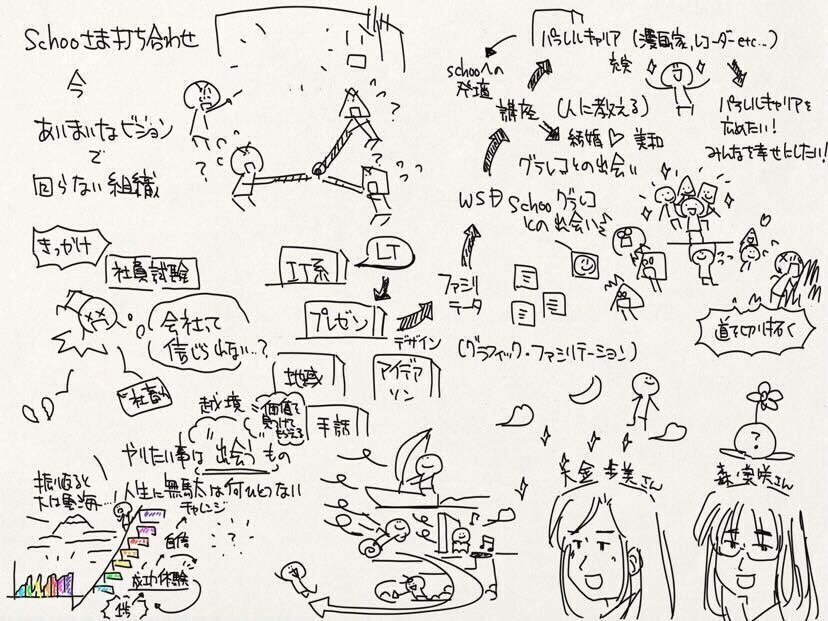 Schooさま打ち合わせ
今
あいまいなビジョン
で
回らない組織
きっかけ
社員試験
会社って
信じられない…?
社員
IT系
LT
プレゼン
デザイン
地域
アイデア
ソン
手話
越境
価値を
見つけて
もらえる
やりたい事は出会うもの
人生に無駄は何ひとつない
チャレンジ
振り返ると
自信
成功体験
1歩
ファシリ
テータ
(グラフィック・ファシリテーション)
WSや
Schooグラレコ
との出会い
講座
(人に教える)
結婚♡美和
グラレコとの出会い
schooへの
登壇
パラレルキャリア(漫画家,レコーダーetc…)
充実
パラレルキャリアを
広めたい!
みんなで幸せにしたい!
道を切り拓く
矢金歩美さん
?